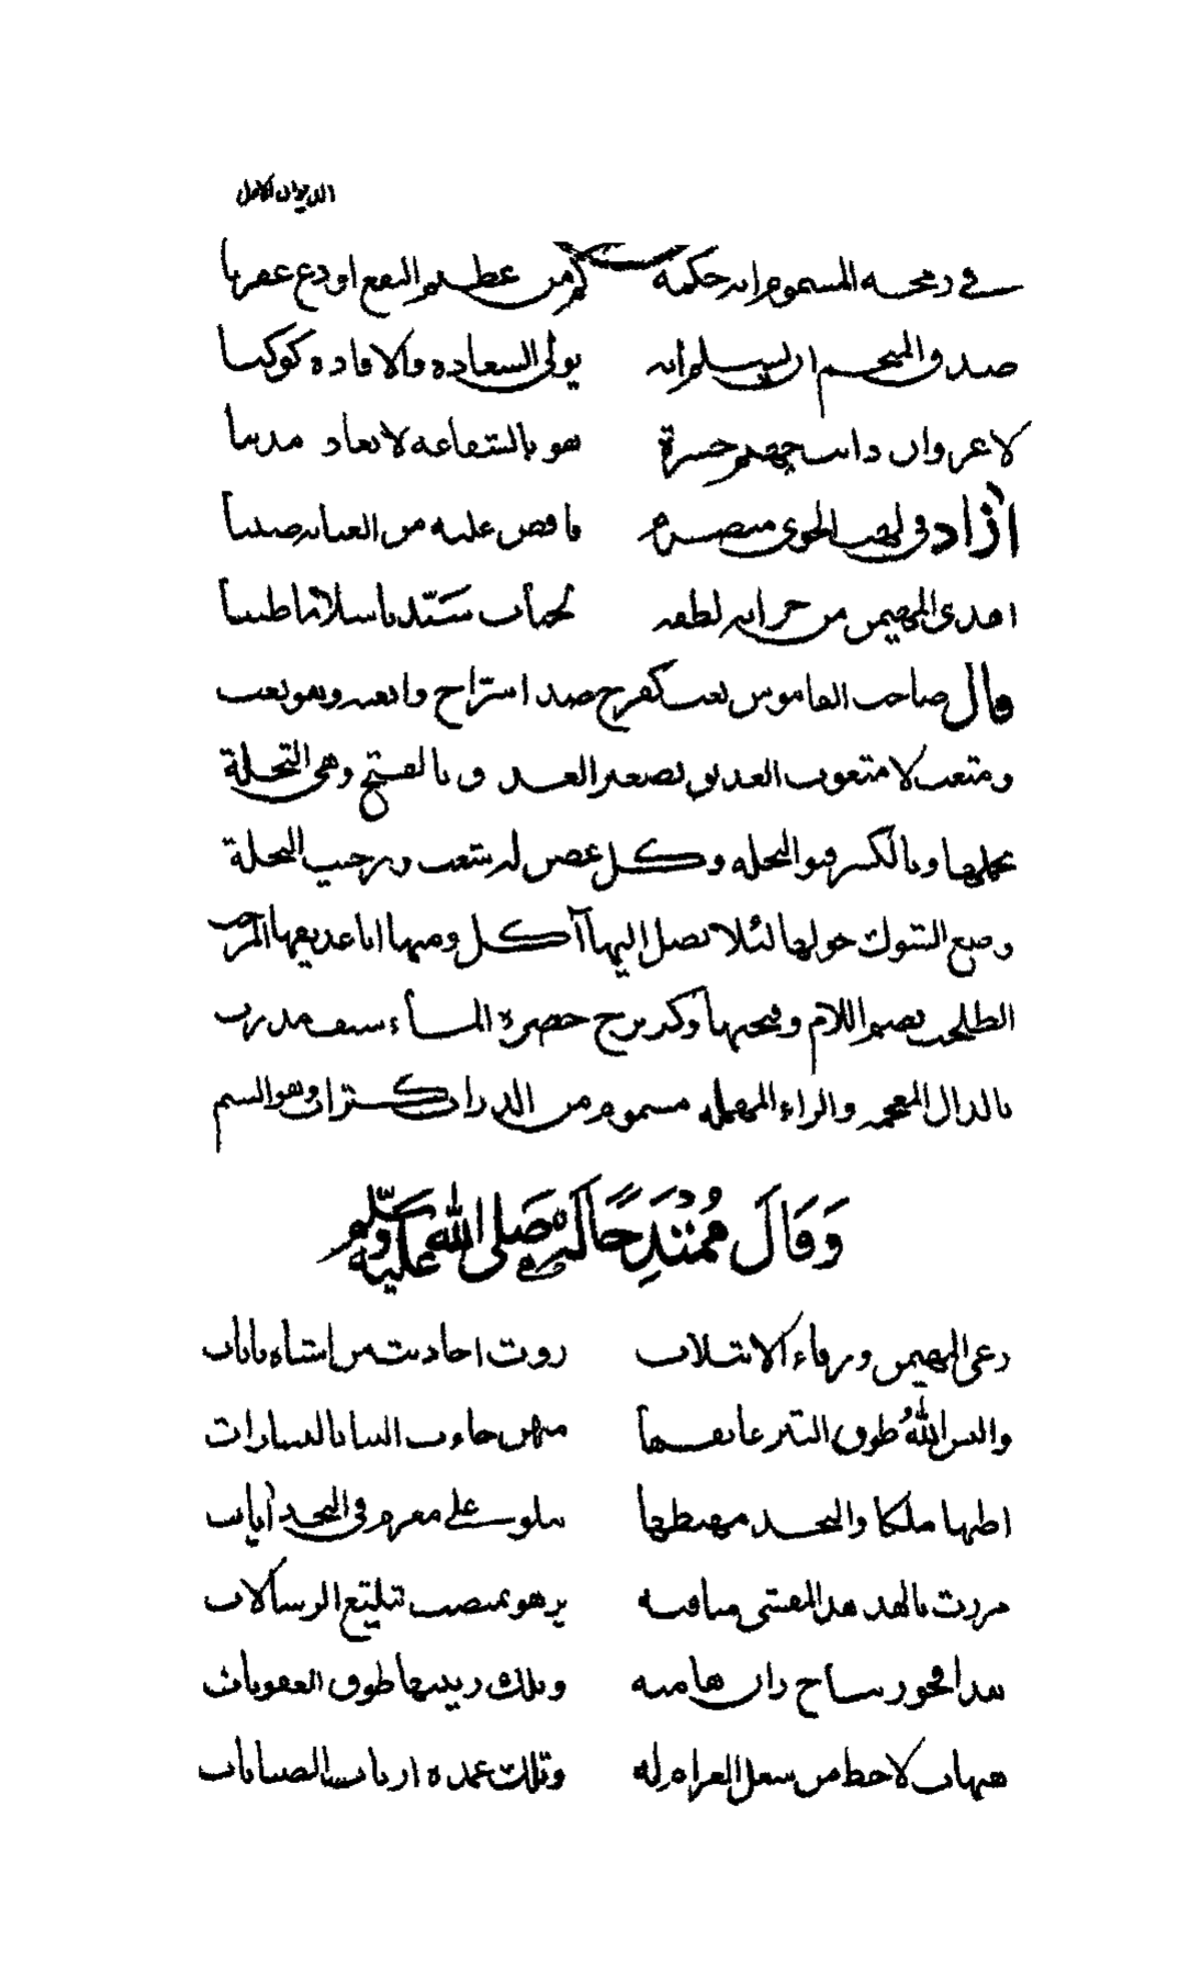 الديوان الاول
في ريحه المسموم ان حكمة كم من عظيم النفع اودع عقربا
صدق المنجم ان يسلم انه يولي السعادة والافادة كوكبا
لا غرو ان ذابت جهنم حسرة هو بالشفاعة لا يعاد مذنبا
آزاد في لهب الجوى متضرم فافض عليه من العناية صيبا
اهدى المهيمن من خزائن لطفه لجناب سيدنا سلاما طيبا
قال صاحب القاموس تعب كفرح ضد استراح واتعبه وهو تعب
ومتعب لا متعوب العذيق تصغير العذق وبالفتح وهي النخلة
بحملها وبالكسر قنو النخلة وكل غصن له شعب وترجيب النخلة
وضع الشوك حولها لئلا يصل اليها آكل ومنها انا عذيقها المرجب
الطحلب بضم اللام وفتحها وكزبرج خضرة الماء سيف مذرب
بالذال المعجمة والراء المهملة مسموم من الذراب كتراب وهو السم
وَقَالَ مُمْتَدِحًا لَهُ صَلى الله عليه وسَلّم
رعى المهيمن ورقاء الاثيلات روت احاديث من اشتاه بانات
والبس الله طوق التبر عاتقها منهن جاءت الينا بالبشارات
اظنها ملكا والنجد مهبطها تتلو على مغرم في النجد آيات
مررت بالهدهد المفشي مناقبه يزهو بمنصب تبليغ الرسالات
هذا فخور بتاج زان هامته وتلك زينتها طوق العقوبات
هيهات لا حظ من شغل الغرام له وتلك عمدة ارباب الصبابات